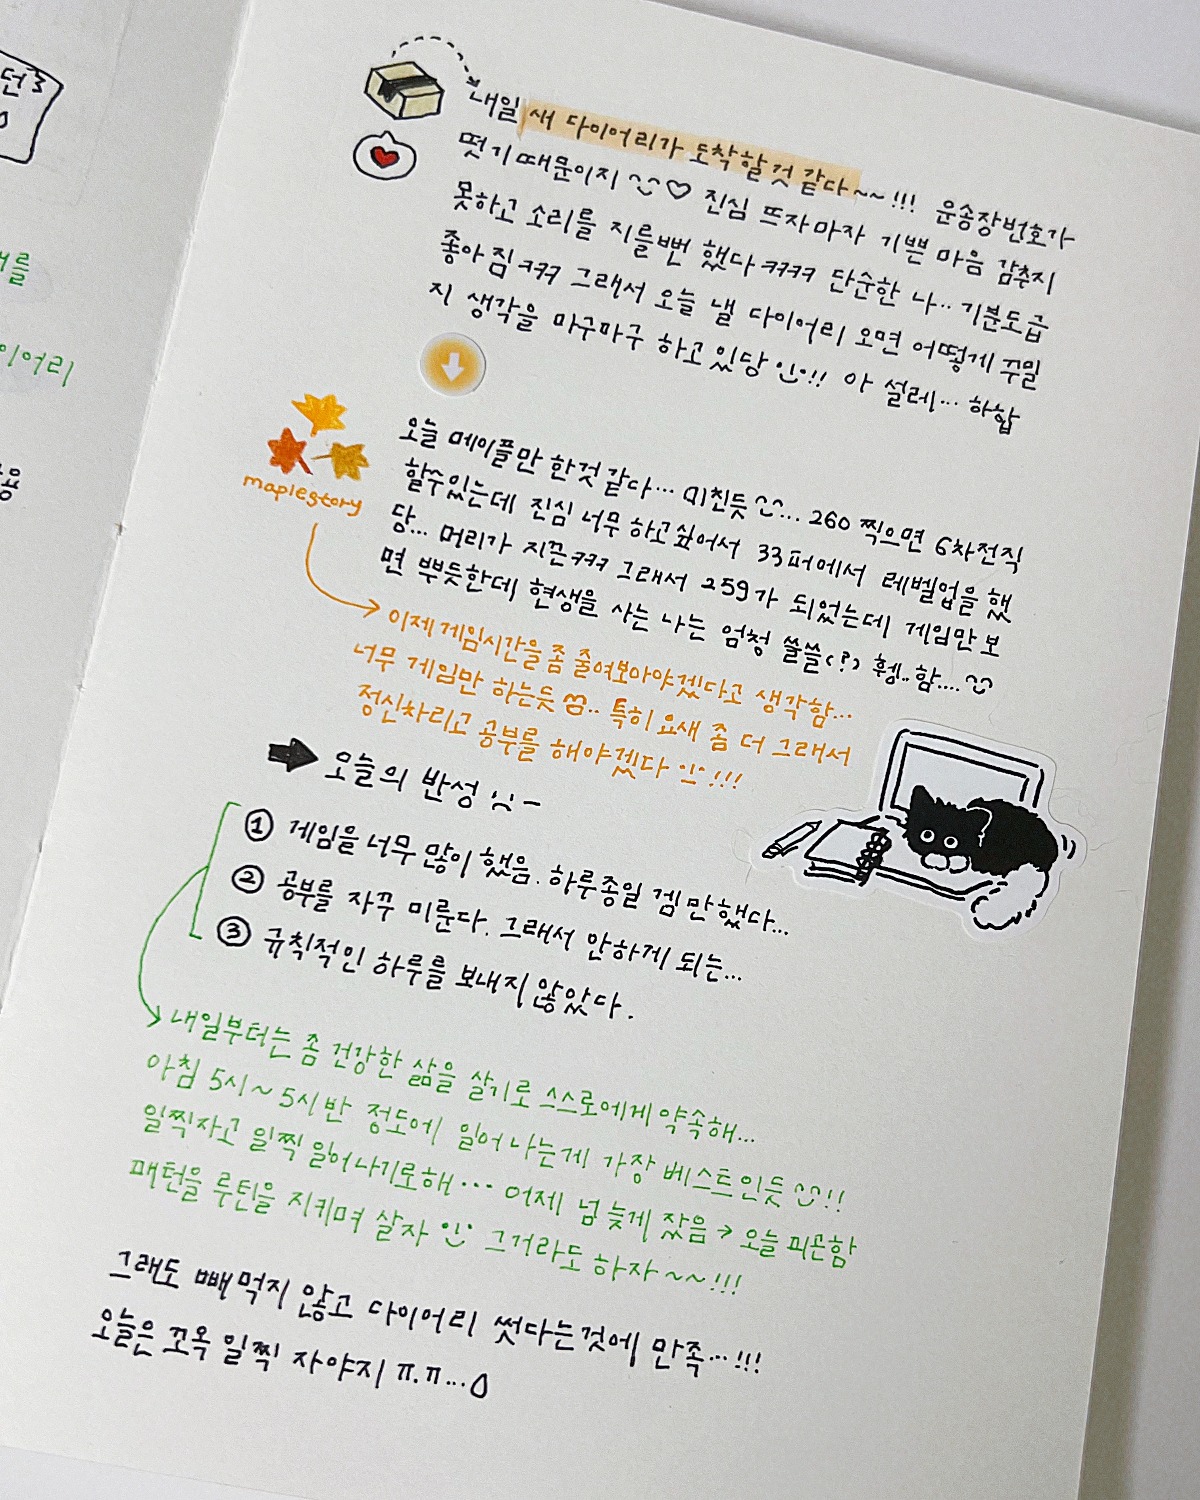 내일 새 다이어리가 도착할것 같다~~!!! 운송장번호가
떳기때문이지 ^^♡ 진심 뜨자마자 기쁜 마음 감추지
못하고 소리를 지를뻔 했다ㅋㅋㅋㅋ 단순한 나.. 기분도급
좋아짐ㅋㅋㅋ 그래서 오늘 낼 다이어리 오면 어떻게 꾸밀
지 생각을 마구마구 하고있당!! 아 설레... 하핳
오늘 메이플만 한것같다... 미친듯^^... 260 찍으면 6차전직
maplestory
할수있는데 진심 너무 하고싶어서 33퍼에서 레벨업을 했
당... 머리가 지끈ㅋㅋㅋ 그래서 259가 되었는데 게임만 보
면 뿌듯한데 현생을 사는 나는 엄청 쓸쓸(?) 휑..함....^^
이제 게임시간을 좀 줄여보아야겠다고 생각함...
너무 게임만 하는듯.. 특히 요새 좀 더 그래서
정신차리고 공부를 해야겠다!!!
오늘의 반성 -
① 게임을 너무 많이 했음. 하루종일 겜만했다...
② 공부를 자꾸 미룬다. 그래서 안하게 되는...
③ 규칙적인 하루를 보내지않았다.
내일부터는 좀 건강한 삶을 살기로 스스로에게 약속해...
아침 5시~5시반 정도에 일어나는게 가장 베스트인듯^^!!
일찍자고 일찍 일어나기로해... 어제 넘 늦게 잤음→오늘 피곤함
패턴을 루틴을 지키며 살자 그거라도 하자~~!!!
그래도 빼먹지 않고 다이어리 썻다는것에 만족...!!!
오늘은 꼬옥 일찍 자야지 ㅠ.ㅠ...
를
이어리
용